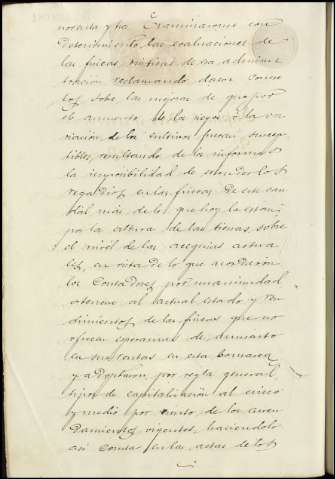 noventa y tres. Examinaron con
detenimiento las evaluaciones de
las fincas rústicas de esa administ
tración reclamando datos concre
tos sobre las mejoras de que por
el aumento de las aguas o la va
riación de los cultivos fueran suscep
tibles, resultando de los informes
la imposibilidad de extender los
regadíos en las fincas de ese cau
dal más de lo que hoy lo están
por la altura de las tierras sobre
el nivel de las acequias actua
les, en vista de lo que acordaron
los Contadores por unanimidad
atenerse al actual estado y ren
dimientos de las fincas que no
ofrecen esperanzas de aumento
en sus rentas en esta comarca
y adoptaron por regla general
tipos de capitalización al cinco
y medio por ciento de los arren
damientos vigentes, haciéndolo
así constar en las actas de los